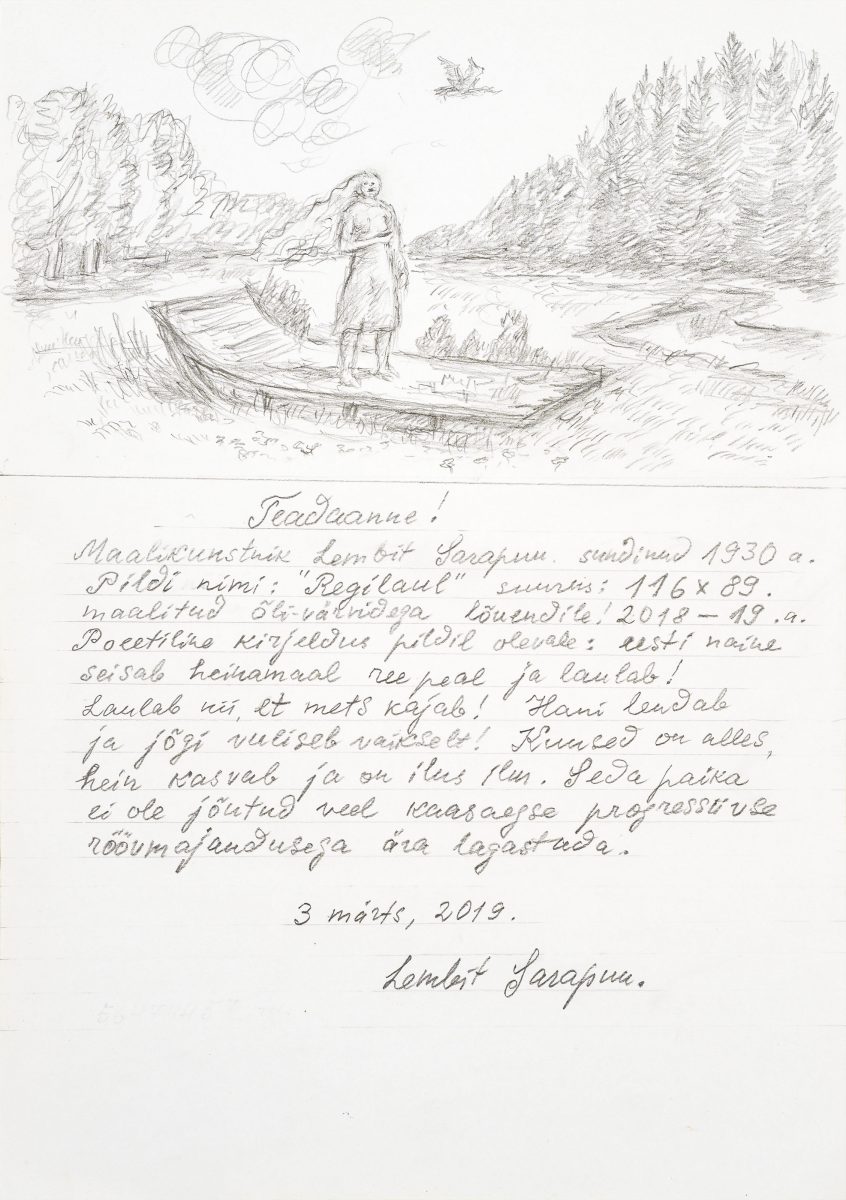 Teadaanne!
Maalikunstnik Lembit Sarapuu sündinud 1930 a.
Pildi nimi: "Regilaul" suurus: 116 x 89.
maalitud õli-värvidega lõuendile! 2018 – 19 .a.
Poeetiline kirjeldus pildil olevale: eesti naine
seisab heinamaal ree peal ja laulab!
Laulab nii, et mets kajab! Hani lendab
ja jõgi vuliseb vaikselt! Kuused on alles,
hein kasvab ja on ilus ilm. Seda paika
ei ole jõutud veel kaasaegse progressiivse
röövmajandusega ära lagastada.
3 märts, 2019.
Lembit Sarapuu.